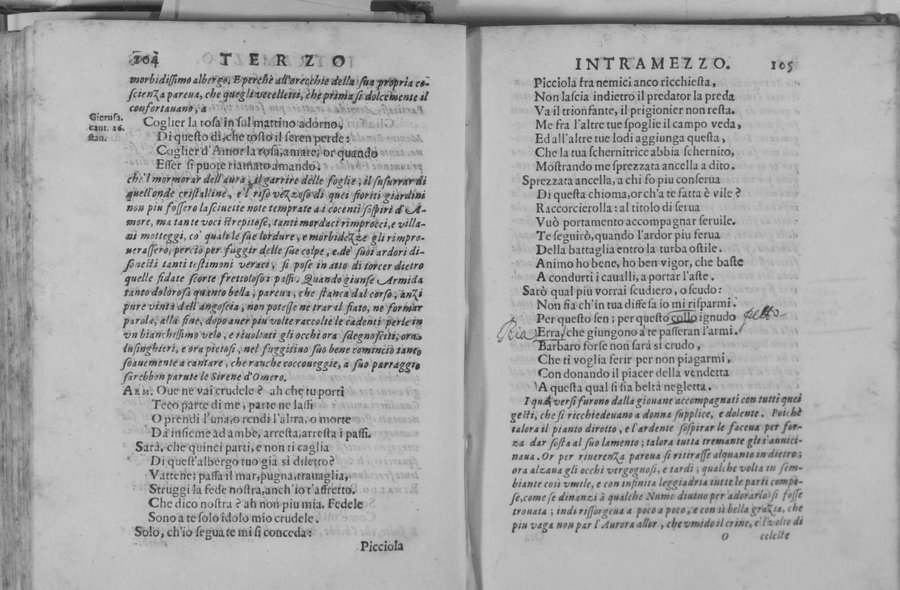 104 TERZO
morbidissimo albergo. E perchè all'orecchie della sua propria co-
scienza pareua, che quegli vccelletti, che prima sì dolcemente il
confortauano, a
Gierusa.
cant. 16.
stan.
Coglier la rosa in sul mattino adorno,
Di questo dì, che tosto il seren perde:
Coglier d'Amor la rosa, amare, or quando
Esser si puote riamato amando.
che'l mormorar dell'aura, il garrire delle foglie, il susurrar di
quell'onde cristalline, e'l riso vezzoso di quei fioriti giardini
non piu fossero lasciuette note temprate a i cocenti sospiri d'A-
more, ma tante voci strepitose, tanti mordaci rimprocci, e villa-
ni motteggi, co' quali le sue lordure, e morbidezze gli rimpro-
uerassero, perciò per fuggir delle sue colpe, e de' suoi ardori di-
sonesti tanti testimoni veraci, si pose in atto di torcer dietro
quelle fidate scorte frettolosi i passi. Quando giunse Armida
tanto dolorosa quanto bella, pareua, che stanca dal corso, anzi
pure vinta dall'angoscia, non potesse ne trar il fiato, ne formar
parola, alla fine, dopo auer piu volte raccolte le cadenti perle in
vn bianchissimo velo, e riuoltati gli occhi ora sdegnosetti, ora
lusinghieri, e ora pietosi, nel fuggitiuo suo bene cominciò tanto
soauemente a cantare, che ranche cornacchie, a suo paraggio
sarebbon parute le Sirene d'Omero.
ARM. Oue ne vai crudele? ah che tu porti
Teco parte di me, parte ne lassi
O prendi l'una, o rendi l'altra, o morte
Dà insieme ad ambe, arresta, arresta i passi.
Sarà, che quinci parti, e non ti caglia
Di quest'albergo tuo già sì diletto?
Vattene; passa il mar, pugna, trauaglia,
Struggi la fede nostra, anch'io t'affretto.
Che dico nostra? ah non piu mia. Fedele
Sono a te solo idolo mio crudele.
Solo, ch'io segua te mi si conceda:
Picciola
INTRAMEZZO. 105
Picciola fra nemici anco richiesta,
Non lascia indietro il predator la preda
Va il trionfante, il prigionier non resta.
Me fra l'altre tue spoglie il campo veda,
Ed all'altre tue lodi aggiunga questa,
Che la tua schernitrice abbia schernito,
Mostrando me sprezzata ancella a dito.
Sprezzata ancella, a chi fo piu conserua
Di questa chioma, or ch'a te fatta è vile?
Raccorcierolla: al titolo di serua
Vuò portamento accompagnar seruile.
Te seguirò, quando l'ardor piu ferua
Della battaglia entro la turba ostile.
Animo ho bene, ho ben vigor, che baste
A condurti i caualli, a portar l'aste.
Sarò qual piu vorrai scudiero, o scudo:
Non fia ch'in tua difesa io mi risparmi.
Per questo sen; per questo collo ignudo petto
Pria
Erra, che giungono a te passeran l'armi.
Barbaro forse non sarà sì crudo,
Che ti voglia ferir per non piagarmi,
Con donando il piacer della vendetta
A questa qual si sia beltà negletta.
I quai versi furono dalla giouane accompagnati con tutti quei
gesti, che si ricchiedeuano a donna supplice, e dolente. Poichè
talora il pianto dirotto, e l'ardente sospirar le faceua per for-
za dar sosta al suo lamento; talora tutta tremante gli s'auuici-
naua. Or per riuerenza pareua si ritirasse alquanto in dietro;
ora alzaua gli occhi vergognosi, e tardi; qualche volta in sem-
biante così vmile, e con infinita leggiadria tutte le parti compo-
se, come se dinanzi à qualche Nume diuino per adorarlo si fosse
trouata; indi rissorgeua a poco a poco, e con sì bella grazia, che
piu vaga non par l'Aurora allor, che vmido il crine, e'l volto di
O celeste